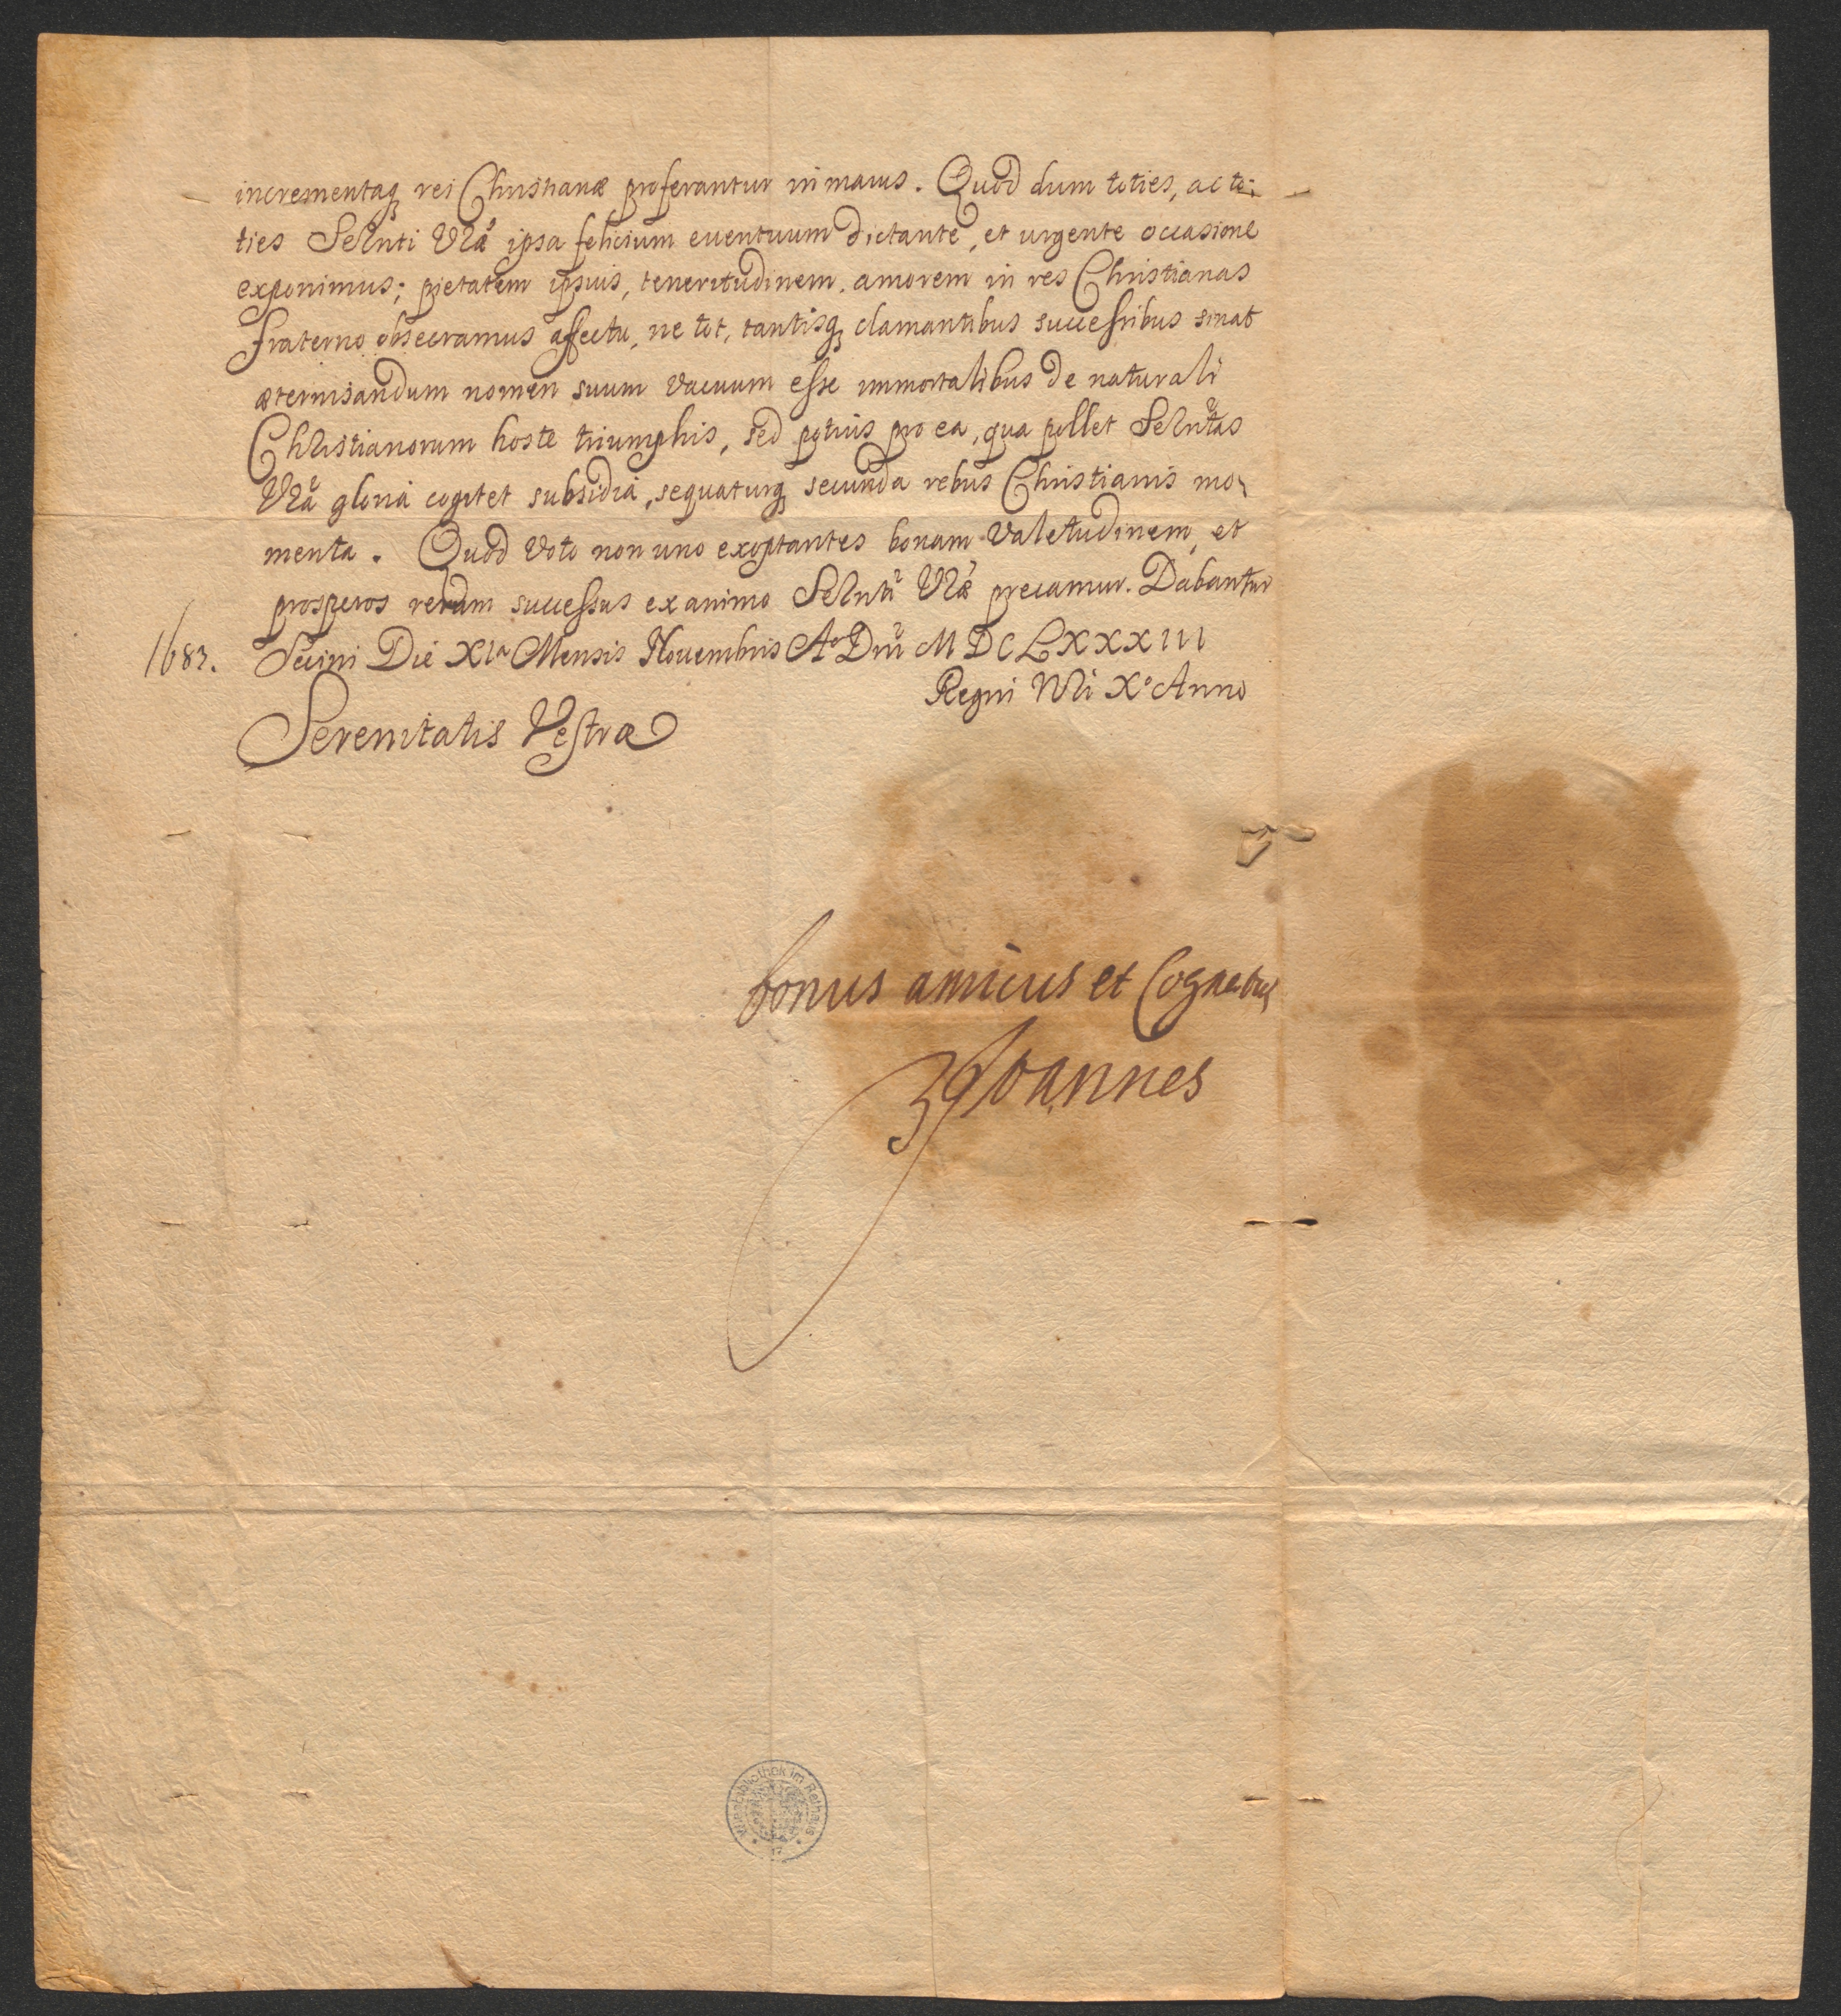 incrementaq₃ rei Christianæ proferantur in maius. Quod dum toties, ac to-
ties Selnti Vræ ipsa felicium euentuum dictante, et urgente occasione
exponimus; pietatem ipsius, teneritudinem, amorem in res Christianas
fraterno obsecramus affectu, ne tot, tantisq₃ clamantibus successibus sinat
æternisandum nomen suum vacuum esse immortalibus de naturali
Christianorum hoste triumphis, sed potius pro ea, qua pollet Selntas
Vra gloria cogitet subsidia, sequaturq₃ secunda rebus Christianis mo-
menta. Quod voto non uno exoptantes bonam valetudinem, et
prosperos rerum successus ex animo Selnti Vræ precamur. Dabantur
1683. Die XIa Mensis Nouembris Ao Dni MDCLXXXIII
Regni Nri Xo Anno
Serenitatis Vestræ
bonus amicus et Cognatus
Joannes
Wienbibliothek im Rathaus